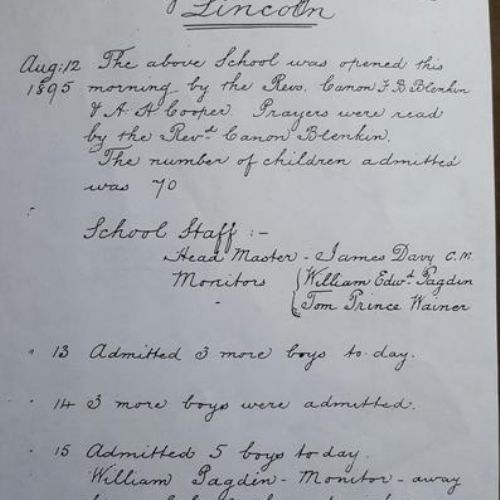 Lincoln
Aug: 12 The above School was opened this
1895 morning by the Revs. Canon F B Blenkin
& A. H Cooper. Prayers were read
by the Revd. Canon Blenkin.
The number of children admitted
was 70
School Staff :-
Head Master - James Davy C.M.
Monitors William Edwd. Pagdin
Tom Prince Wainer
13 Admitted 3 more boys to day.
14 3 more boys were admitted.
15 Admitted 5 boys today.
William Pagdin - Monitor - away